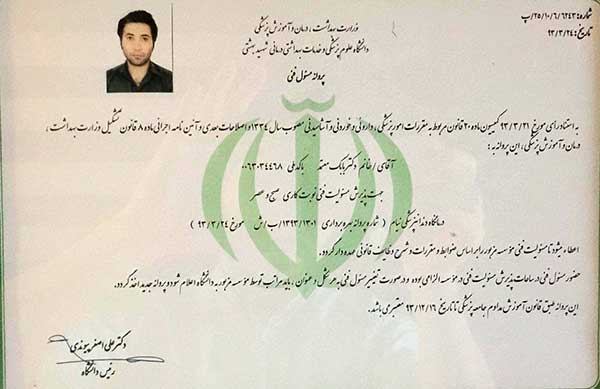 شماره: ۲۵/۱۰/۶/۶۲۴۳/پ
تاریخ: ۹۳/۳/۲۴
وزارت بهداشت، درمان و آموزش پزشکی
دانشگاه علوم پزشکی و خدمات بهداشتی درمانی شهید بهشتی
پروانه مسئول فنی
به استناد رأی مورخ ۹۳/۳/۲۱ کمیسیون ماده ۲۰ قانون مربوط به مقررات امور پزشکی، داروئی و خوردنی و آشامیدنی مصوب سال ۱۳۳۴ و اصلاحات بعدی و آئین نامه اجرائی ماده ۸ قانون تشکیل وزارت بهداشت،
درمان و آموزش پزشکی، این پروانه به:
آقای / خانم دکتر بابک معتمد با کد ملی ۰۰۶۳۰۳۴۴۶۸
جهت پذیرش مسئولیت فنی نوبت کاری صبح و عصر
درمانگاه دندانپزشکی نیام (شماره پروانه بهره برداری ۱۳۹۳/۱۳۰۱/ب/ش مورخ ۹۳/۳/۲۴)
اعطاء میشود تا مسئولیت فنی مؤسسه مزبور را بر اساس ضوابط و مقررات و شرح وظایف قانونی عهده دار گردد.
حضور مسئول فنی در ساعات پذیرش مسئولیت فنی در مؤسسه الزامی بوده و در صورت تغییر مسئول فنی به هر شکل و عنوان، باید مراتب توسط مؤسسه مزبور به دانشگاه اعلام شود و پروانه جدید اخذ گردد.
این پروانه طبق قانون آموزش مداوم جامعه پزشکی تا تاریخ ۹۳/۱۲/۱۶ معتبر می باشد.
دکتر علی اصغر پیوندی
رئیس دانشگاه